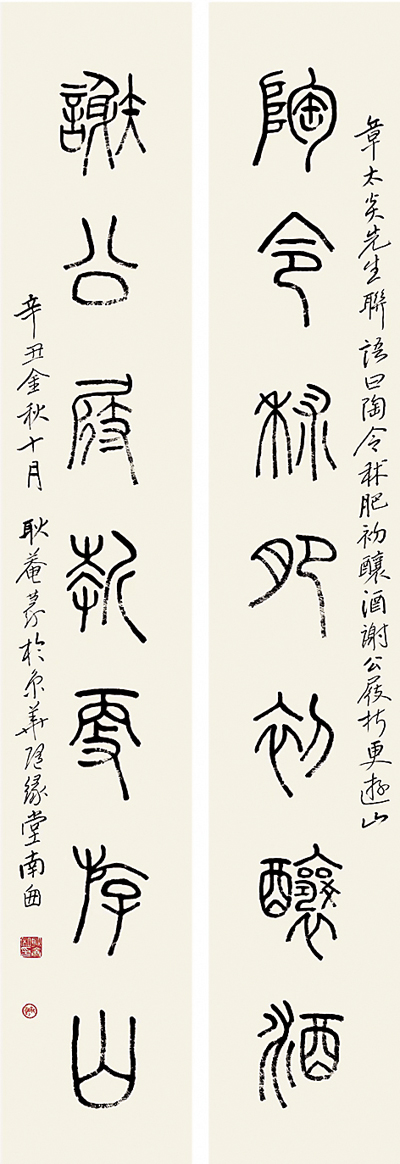 章太炎先生聯語曰陶令秫肥初釀酒謝公屐折更遊山
陶令秫肥初釀酒
謝公屐折更斿山
辛丑金秋十月 耿菴篆於京華隨緣堂南囱